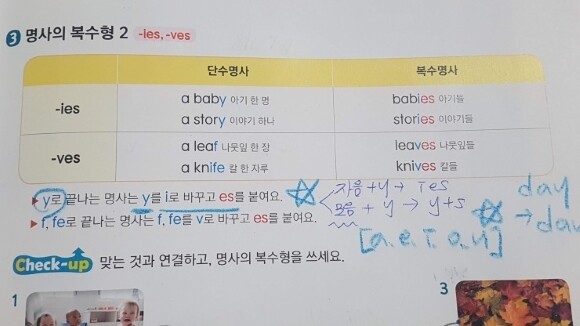 3 명사의 복수형 2 -ies, -ves
단수명사 복수명사
-ies
a baby 아기 한 명 babies 아기들
a story 이야기 하나 stories 이야기들
-ves
a leaf 나뭇잎 한 장 leaves 나뭇잎들
a knife 칼 한 자루 knives 칼들
▶ y로 끝나는 명사는 y를 i로 바꾸고 es를 붙여요.
▶ f, fe로 끝나는 명사는 f, fe를 v로 바꾸고 es를 붙여요.
자음 + y → ies
모음 + y → y+s
[a. e. i. o. u]
day
→ day
Check-up 맞는 것과 연결하고, 명사의 복수형을 쓰세요.
1 3